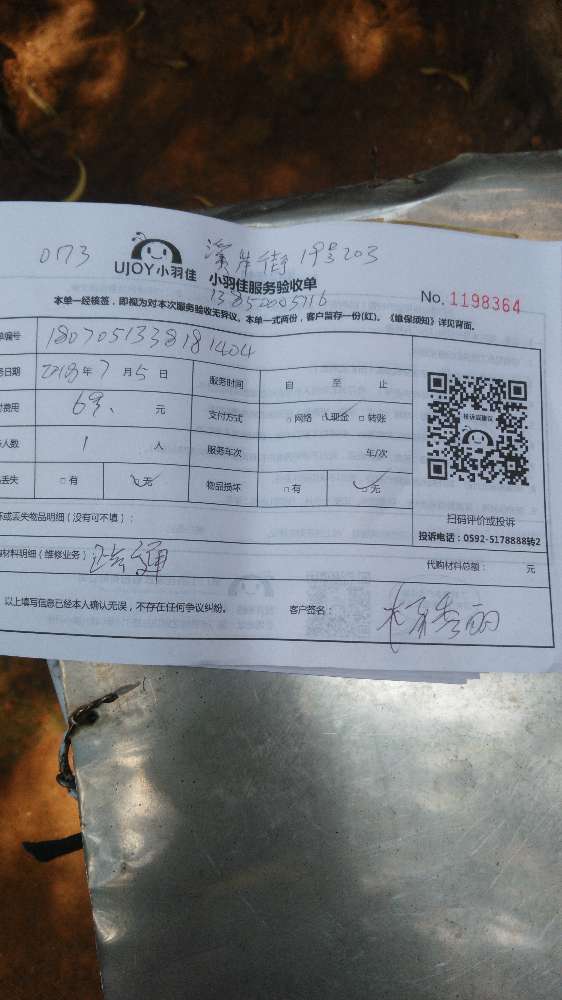 0173
UJOY小羽佳
溪岸街19号203
小羽佳服务验收单
13850005716
No. 1198364
本单一经核签，即视为对本次服务验收无异议。本单一式两份，客户留存一份(红)。《维保须知》详见背面。
单编号 1807051338181404
务日期 2018年7月5日 服务时间 自 至 止
费用 69、 元 支付方式 □网络 ☑现金 □转账
人数 1 人 服务车次 车/次
丢失 □有 ☑无 物品损坏 □有 ☑无
投诉或建议
扫码评价或投诉
投诉电话：0592-5178888转2
坏或丢失物品明细（没有可不填）：
材料明细（维修业务） 疏通 代购材料总额： 元
以上填写信息已经本人确认无误，不存在任何争议纠纷。 客户签名：